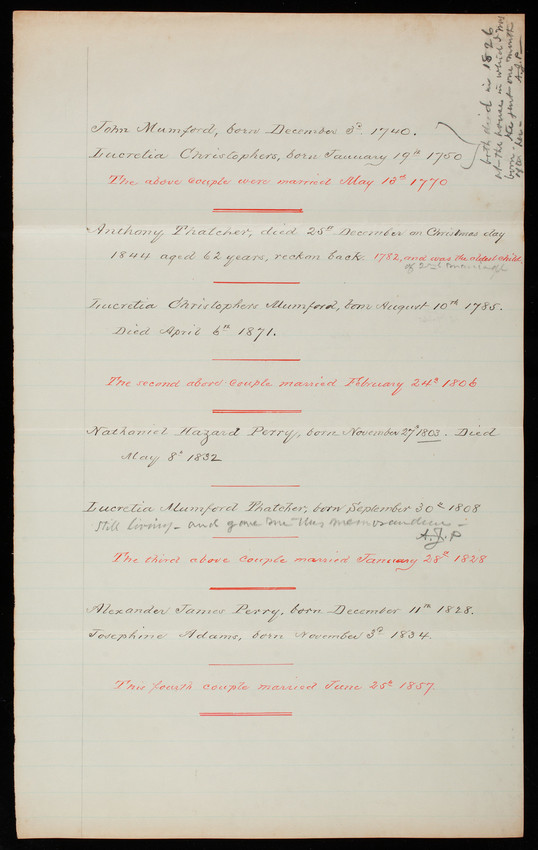 John Mumford, born December 3d 1740.
Lucretia Christophers, born January 19th 1750
The above couple were married May 13th 1770
both died in 1826
at the house in which I was
born. the sent one month
after her—
A.J.P.
Anthony Thatcher, died 25th December on Christmas day
1844 aged 62 years, reckon back 1782, and was the oldest child
of
Lucretia Christophers Mumford, born August 10th 1785.
Died April 6th 1871.
The second above couple married February 24th 1806
Nathaniel Hazard Perry, born November 27th 1803. Died
May 8th 1832
Lucretia Mumford Thatcher, born September 30th 1808
still living — and gave me this memorandum —
A.J.P
The third above couple married January 28th 1828
Alexander James Perry, born December 11th 1828.
Josephine Adams, born November 3d 1834.
This fourth couple married June 25th 1857.